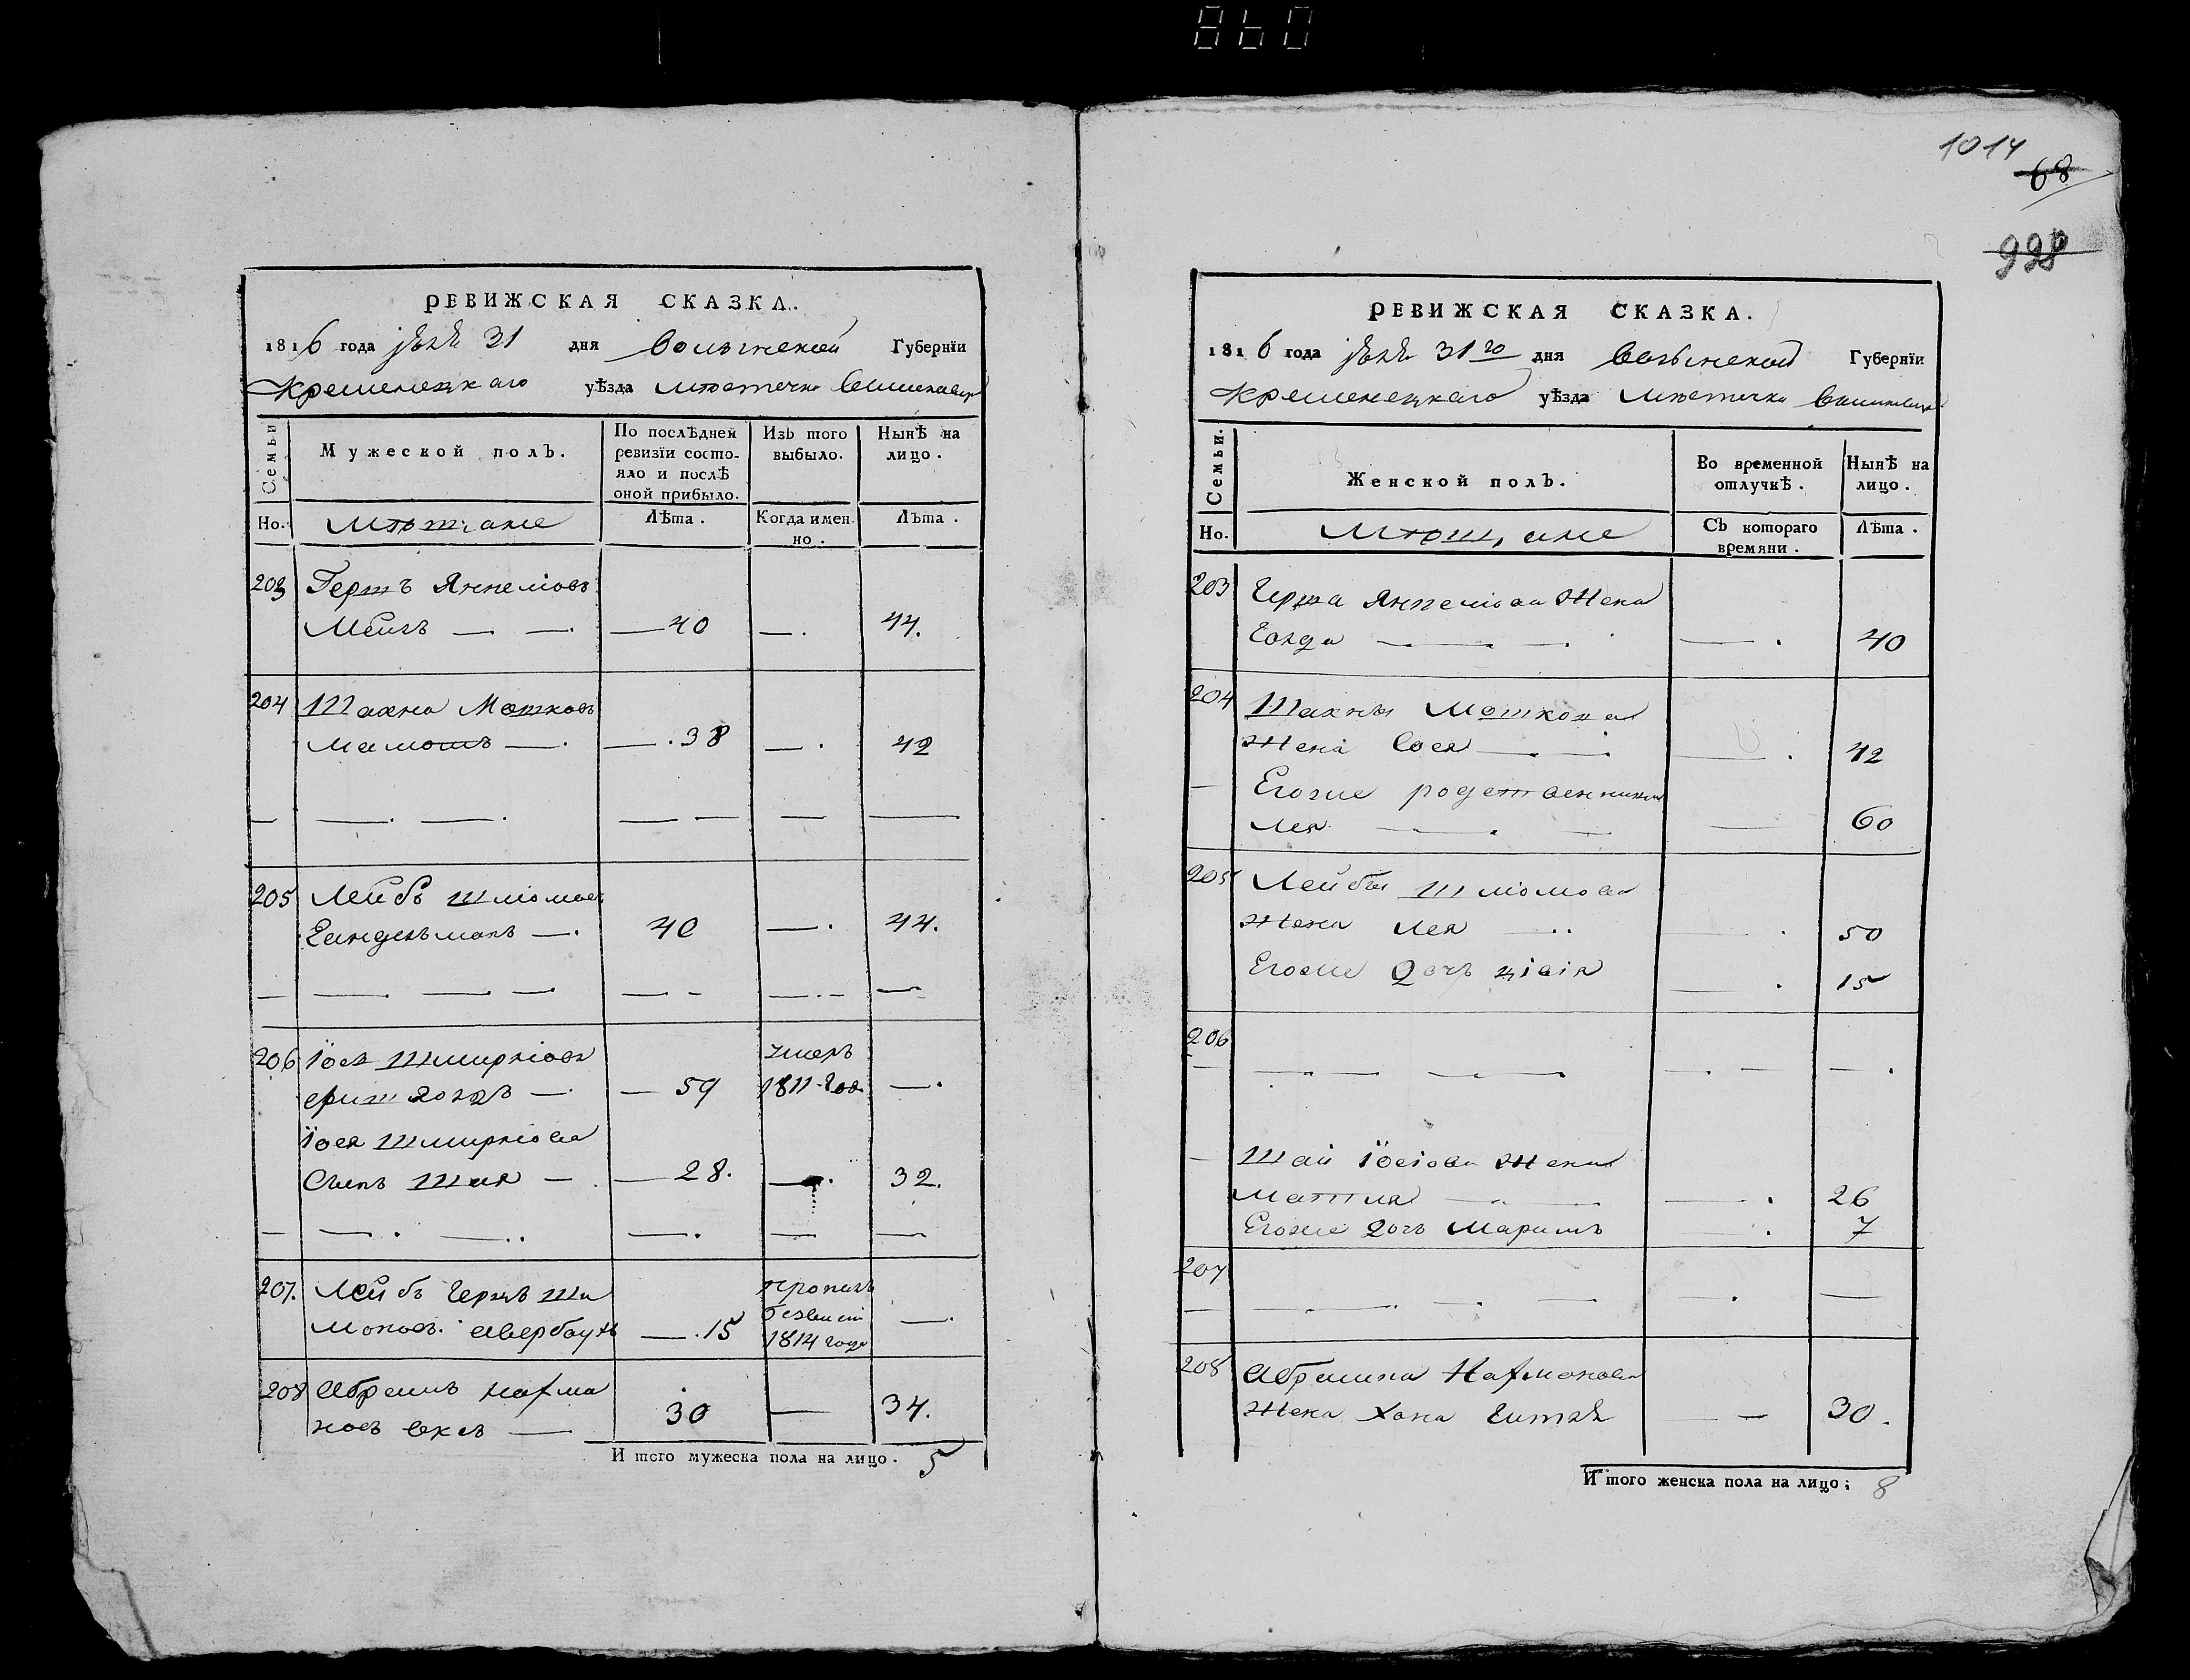 860
1014
68
998
РЕВИЖСКАЯ СКАЗКА.
1816 года 31 дня Волынской Губернїи
Кременецкаго уѣзда мѣстечка
Семьи
Мужеской полъ.
По послѣдней ревизїи состо-
яло и послѣ
оной прибыло.
Изъ того выбыло.
Нынѣ на лицо.
Но.
Мѣщане
Лѣта.
Когда имен-
но.
Лѣта.
203 Герш Янкелiовъ
— — — 40 —. 44.
204 Шахна Мошковъ
—. —. 38 —. 42
205 Лейбъ Шмiомовъ
—. 40 —. 44.
206 Їось Шмирлiовъ умеръ
— — 59 1811 год —.
Їося Шмирлiова
Сынъ Шая — — 28. —. 32.
207. Лейбъ Герцъ Ши
моновъ. Авербаухъ —. 15 пропалъ безвести 1814 года —.
208 Абрамъ Нахма
новъ — 30 — 34.
И того мужеска пола на лицо. 5
РЕВИЖСКАЯ СКАЗКА.
1816 года 31го дня Волынской Губернїи
Кременецкаго уѣзда мѣстечка
Семьи.
Женской полъ.
Во временной отлучкѣ.
Нынѣ на лицо.
Но.
Мѣщане
Съ котораго времяни.
Лѣта.
203 Герша Янкелiова Жена
Голда — — — —. 40
204 Шахны Мошкова
Жена Сося — — —. 42
— Егоже родственница
Лея — — — 60
205 Лейбы Шмiомова
Жена Лея — —. 50
Егоже Дочь Цiвiя —. 15
206
— Шаи Їосiова Жена
Матля — — —. 26
Егоже Дочь Маримъ —. 7
207
208 Абрамина Нахманова
Жена Хана Гитля — — 30.
И того женска пола на лицо; 8